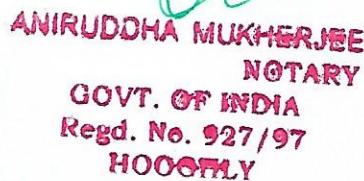 ANIRUDDHA MUKHERJEE
NOTARY
GOVT. OF INDIA
Regd. No. 927/97
HOOGHLY